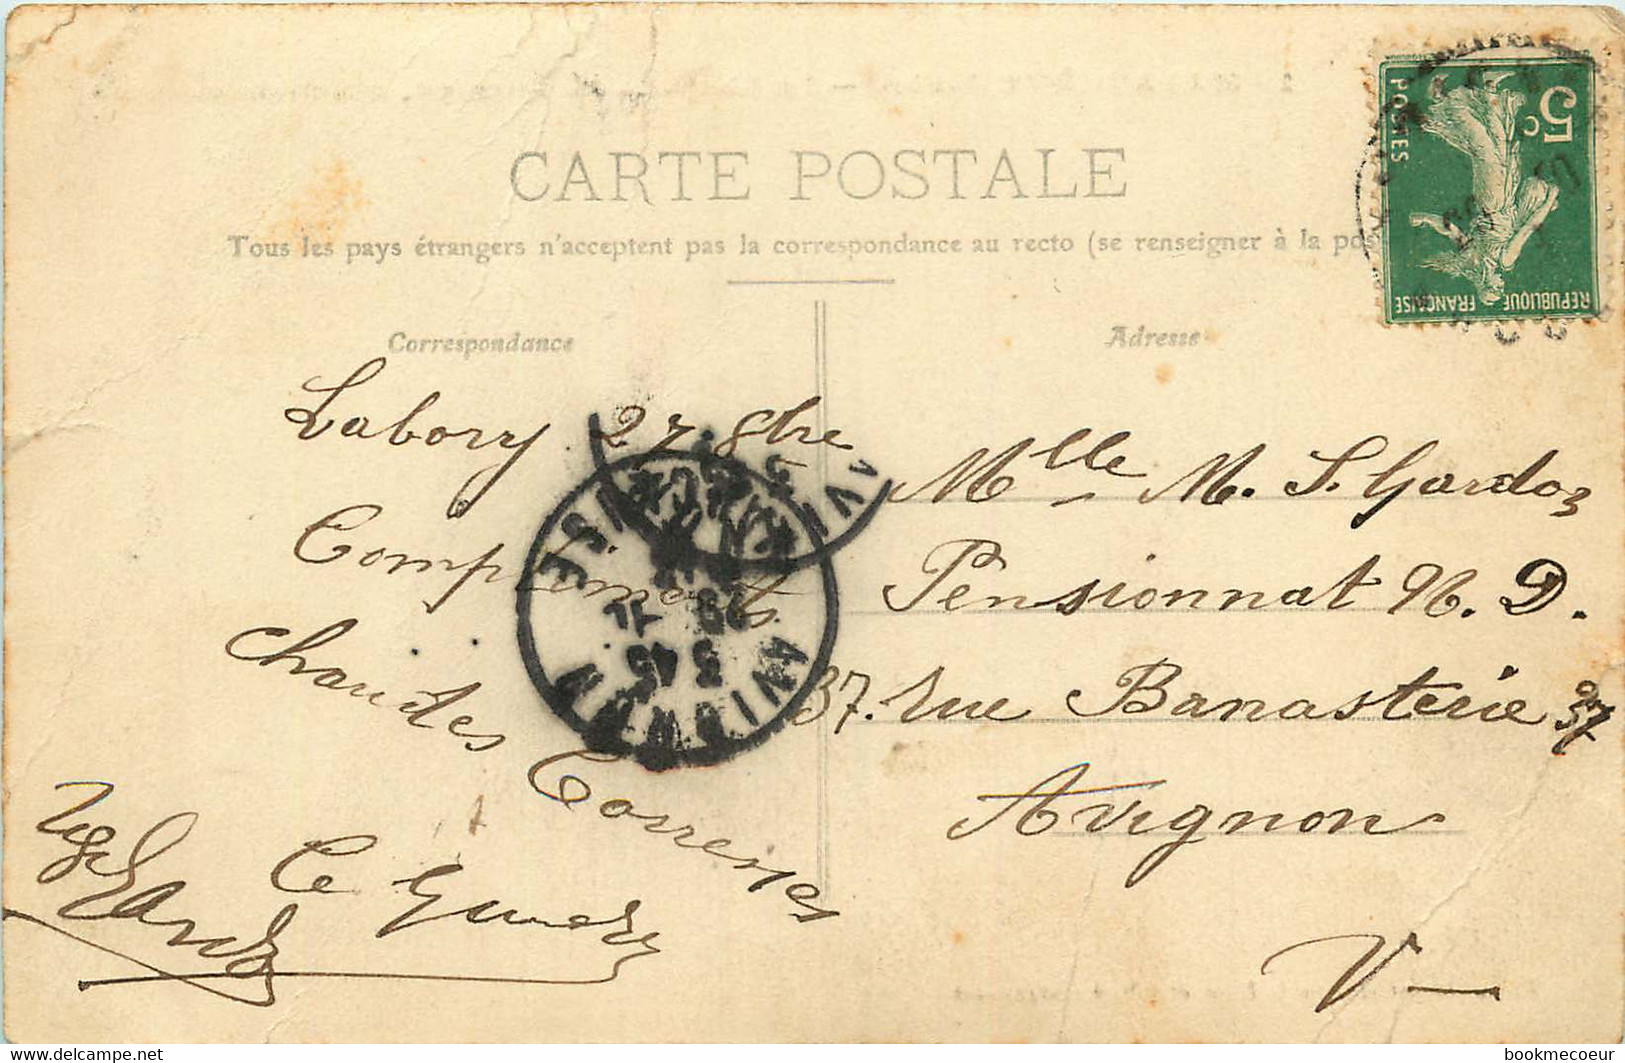 CARTE POSTALE
Tous les pays étrangers n'acceptent pas la correspondance au recto (se renseigner à la pos
Correspondance
Adresse
5c
POSTES
REPUBLIQUE FRANÇAISE
Labory 27 8bre
Compliments
Chaudes Caresses
C
Mlle M. S. Gardon
Pensionnat N. D.
37. rue Banasterie 37
Avignon
V—
AVIGNON
VAUCLUSE
5 45
28
bookmecoeur